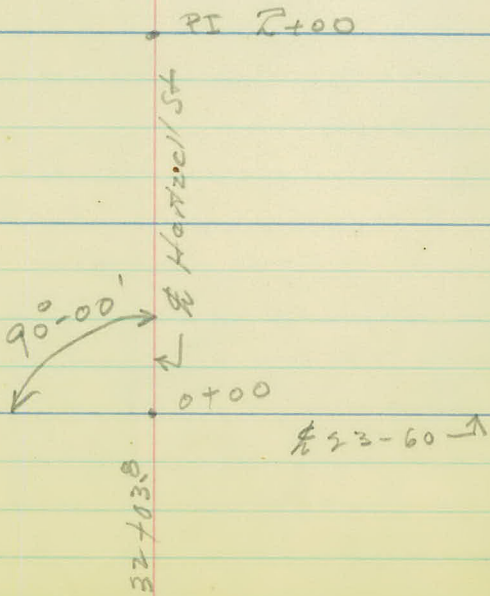 PI 2+00
℄ Hartzell St
90°-00'
0+00
℄ S3-60
32+03.8